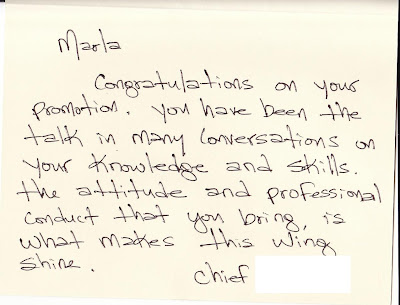 Marla
Congratulations on your
promotion. You have been the
talk in many conversations on
your knowledge and skills.
The attitude and professional
conduct that you bring, is
what makes this wing
shine.
Chief